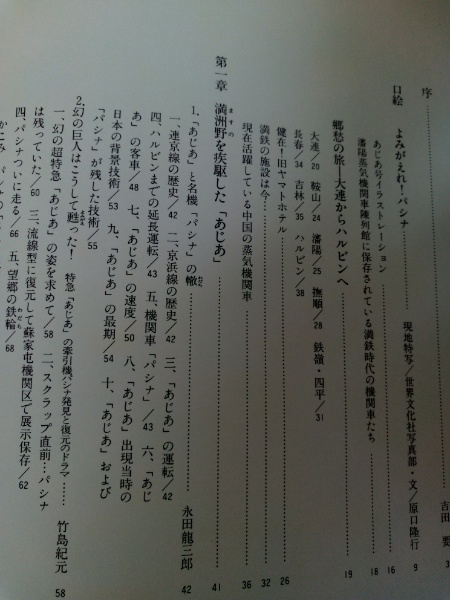 序 吉田 要 3
口絵 よみがえれ!パシナ 現地特写/世界文化社写真部・文/原口隆行 9
あじあ号イラストレーション 16
瀋陽蒸気機関車陳列館に保存されている満鉄時代の機関車たち 18
郷愁の旅―大連からハルピンへ 19
大連/20 鞍山/24 瀋陽/25 撫順/28 鉄嶺・四平/31
長春/34 吉林/35 ハルピン/38
健在!旧ヤマトホテル 26
満鉄の施設は今… 32
現在活躍している中国の蒸気機関車 36
第一章 満洲野を疾駆した「あじあ」 41
ますの
1、「あじあ」と名機「パシナ」の轍 永田龍三郎 42
わだち
一、連京線の歴史/42 二、京浜線の歴史/42 三、「あじあ」の運転/42
四、ハルピンまでの延長運転/43 五、機関車「パシナ」/43 六、「あじ
あ」の客車/48 七、「あじあ」の速度/50 八、「あじあ」出現当時の
日本の背景技術/53 九、「あじあ」の最期/54 十、「あじあ」および
「パシナ」が残した技術/55
2、幻の巨人はこうして甦った! 特急「あじあ」の牽引機パシナ発見と復元のドラマ…… 竹島紀元 58
一、幻の超特急「あじあ」の姿を求めて/58 二、スクラップ直前…パシナ
は残っていた/60 三、流線型に復元して蘇家屯機関区で展示保存/62
四、パシナついに走る/66 五、望郷の鉄輪/68
わだち